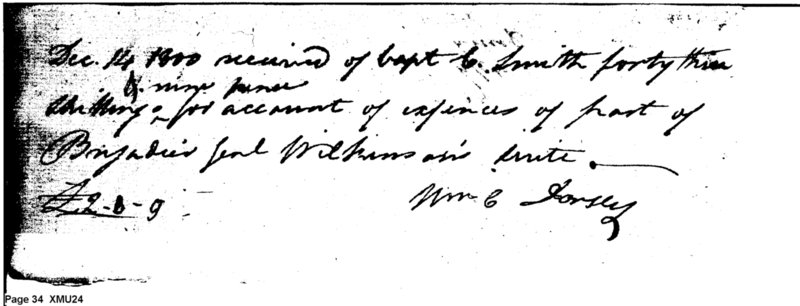 Dec. 14 1800 received of Capt C. Smith forty three
& nine pence
shillings ^ for account of expences of part of
Brigadier Genl Wilkinson's suite.
£2-3-9
Wm C Dorsey
Page 34 XMU24